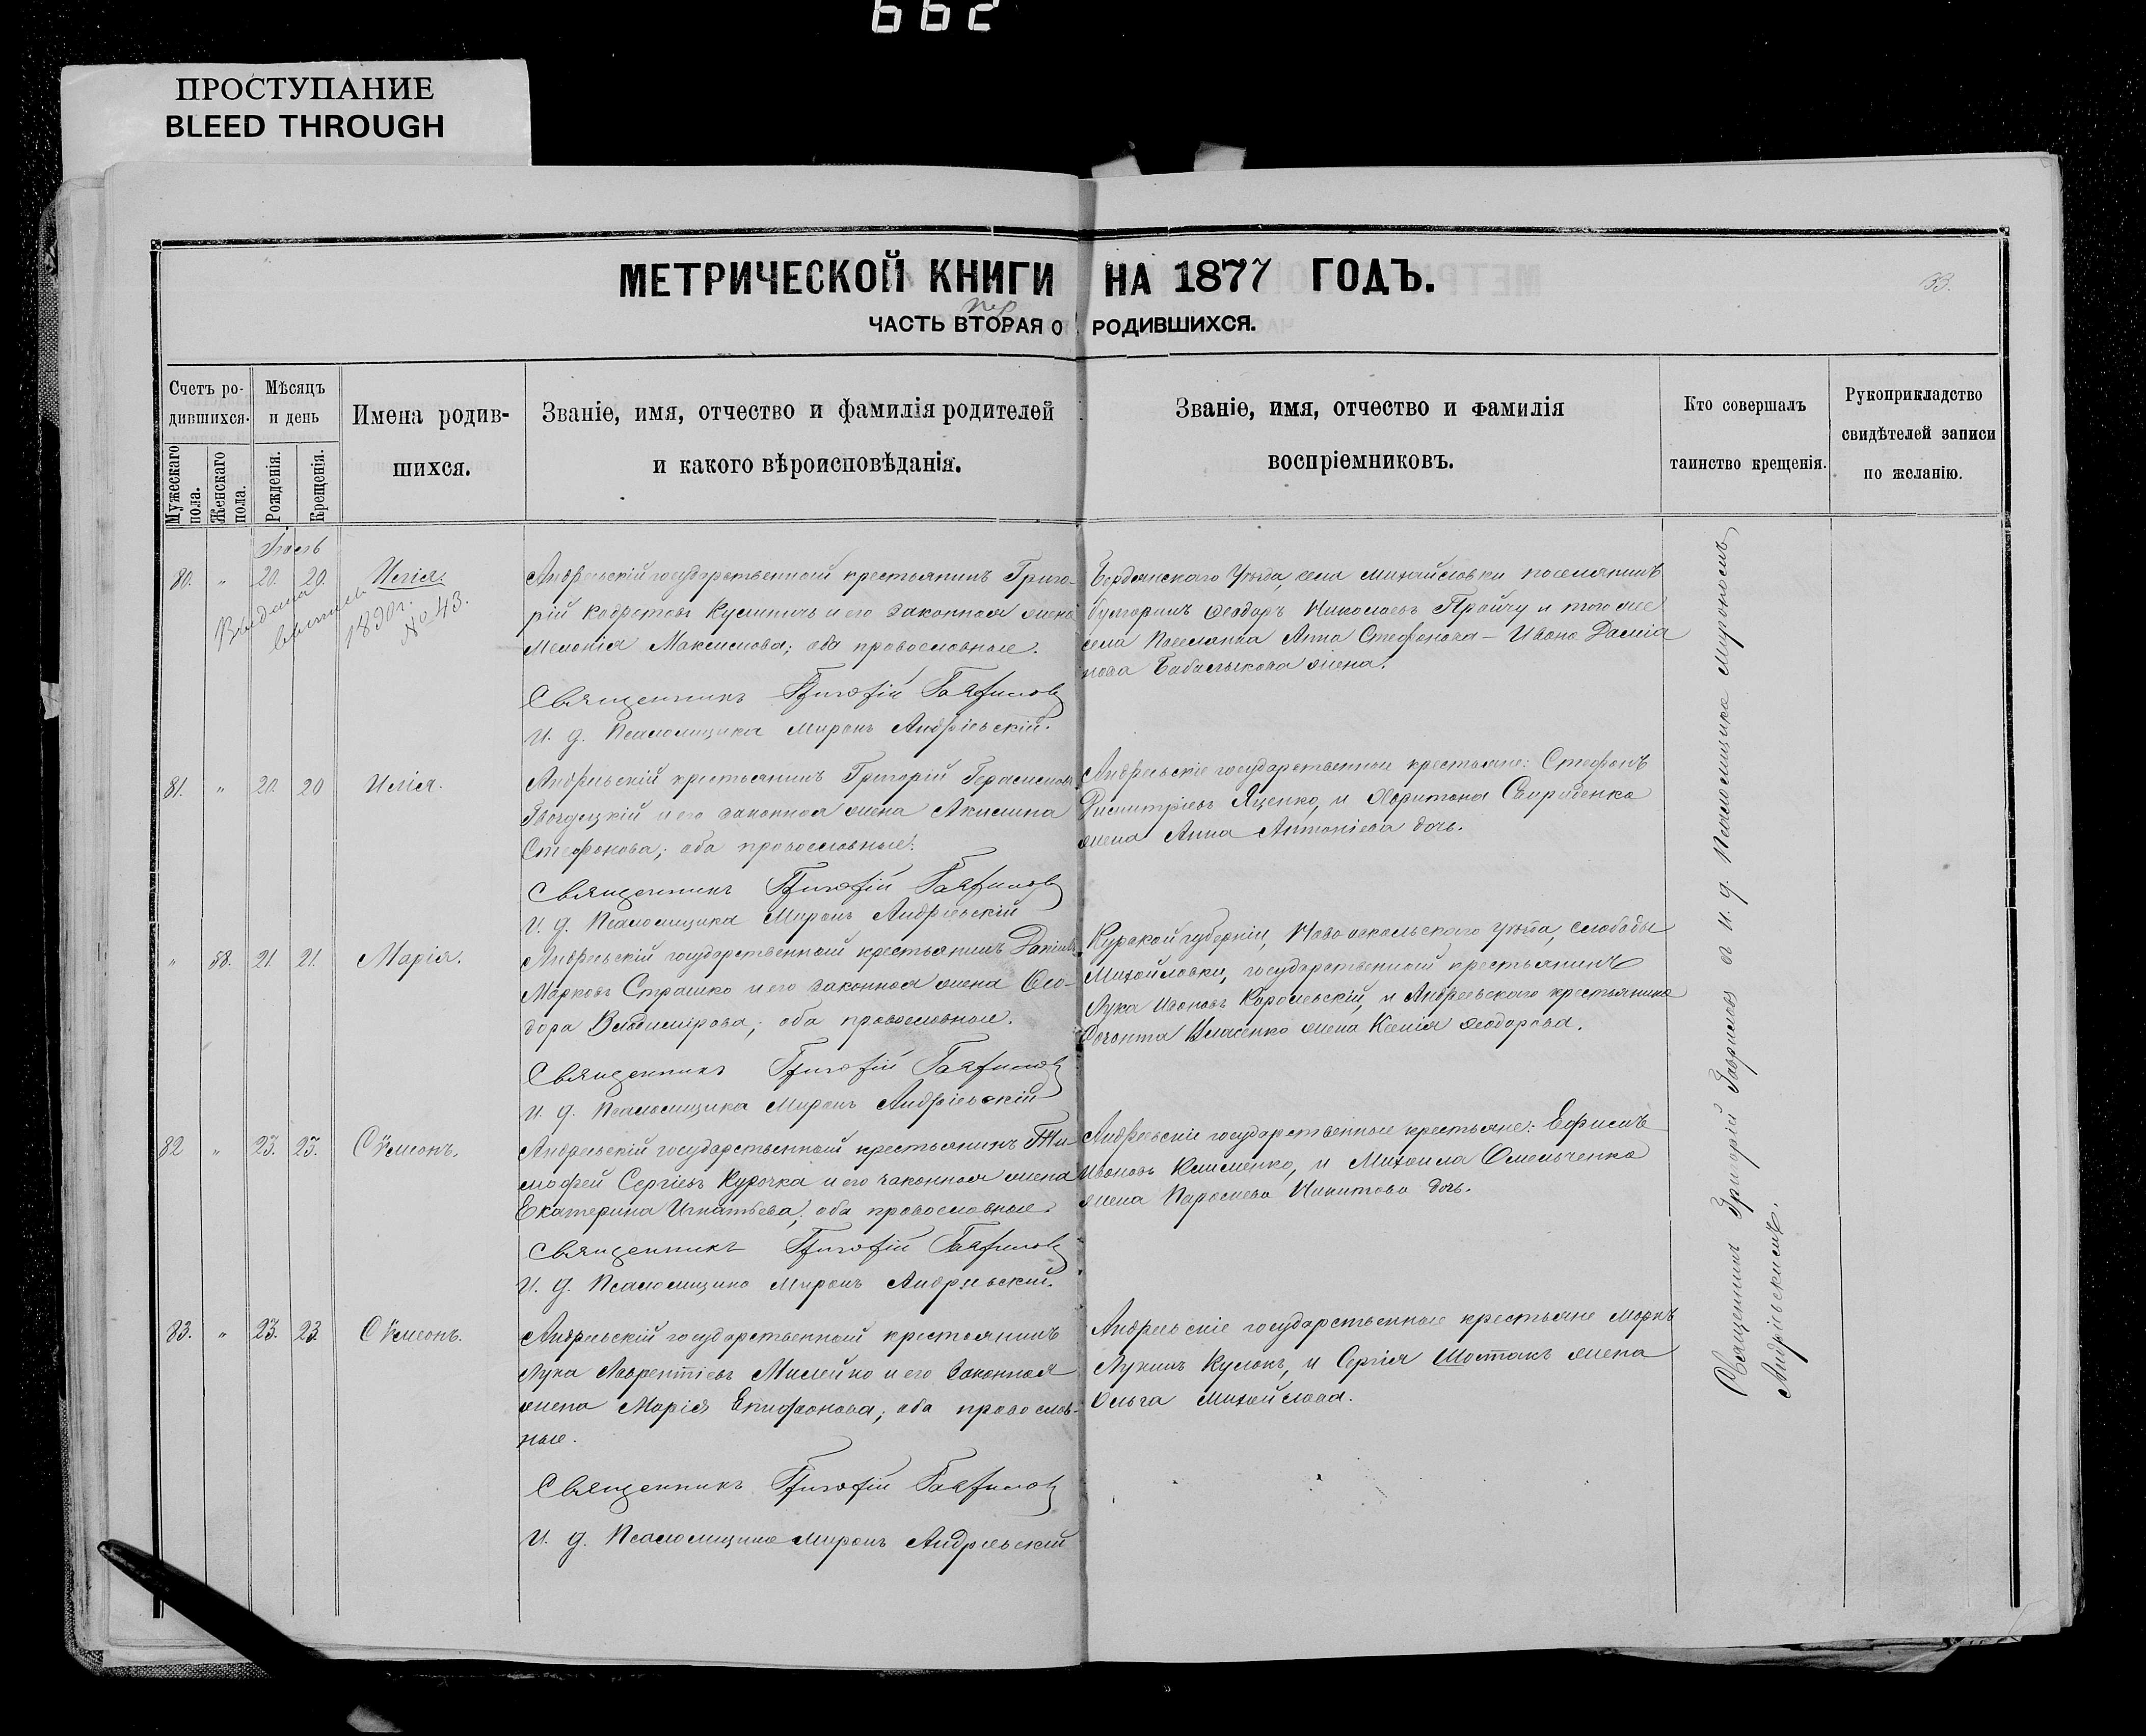 662
ПРОСТУПАНИЕ
BLEED THROUGH
МЕТРИЧЕСКОЙ КНИГИ НА 1877 ГОДЪ.
33.
пер
ЧАСТЬ ВТОРАЯ О РОДИВШИХСЯ.
Счетъ ро-
дившихся.
Мужескаго пола.
Женскаго пола.
Мѣсяцъ
и день
Рожденія.
Крещенія.
Имена родив-
шихся.
Званіе, имя, отчество и фамилія родителей
и какого вѣроисповѣданія.
Званіе, имя, отчество и фамилія
воспріемниковъ.
Кто совершалъ
таинство крещенія.
Рукоприкладство
свидѣтелей записи
по желанію.
80. " 20. 20. Илія.
Выдана
1890 г.
№ 43.
Андреевскій государственный крестьянинъ Григо-
рій Кодратовъ и его законная жена
Меланія Максимова; оба православные.
Священникъ Григорій Гавриловъ
И. д. Псаломщика Миронъ Андріевскій.
Бердянскаго Уѣзда, села Михайловки поселянинъ
болгаринъ Ѳеодоръ Николаевъ и того же
села поселянка Анна Стефанова – Ивана Даміа
нова жена.
81. " 20. 20 Илія.
Андреевскій крестьянинъ Григорій Герасимовъ
и его законная жена Акилина
Стефанова; оба православные.
Священникъ Григорій Гавриловъ
И. д. Псаломщика Миронъ Андріевскій
Андреевскіе государственные крестьяне: Стефанъ
Димитріевъ Яценко, и Харитона Свириденка
жена Анна Антоніева дочь.
" 58. 21. 21. Марія.
Андреевскій государственный крестьянинъ Даніилъ
Марковъ Страшко и его законная жена Ѳео-
дора Владимірова; оба православные.
Священникъ Григорій Гавриловъ
И. д. Псаломщика Миронъ Андріевскій
Курской губерніи, Новооскольскаго уѣзда, слободы
Михайловки, государственный крестьянинъ
Лука Ивановъ Королевскій, и Андреевскаго крестьянина
Власенко жена Ксенія Ѳеодорова.
82 " 23. 23. Сѵмеонъ.
Андреевскій государственный крестьянинъ Ти-
моѳей Сергіевъ Курочка и его законная жена
Екатерина Игнатьева; оба православные.
Священникъ Григорій Гавриловъ
И. д. Псаломщика Миронъ Андріевскій.
Андреевскіе государственные крестьяне: Ефимъ
Ивановъ Клименко, и Михаила Омельченка
жена Параскева Никитова дочь.
83. " 23. 23. Сѵмеонъ.
Андреевскій государственный крестьянинъ
Лука Лаврентіевъ Милейко и его законная
жена Марія Епифанова; оба православ-
ные.
Священникъ Григорій Гавриловъ
И. д. Псаломщика Миронъ Андріевскій
Андреевскіе государственные крестьяне Маркъ
Лукинъ и Сергія Шостакъ жена
Ольга Михайлова.
Священникъ Григорій Гавриловъ съ И. д. Псаломщика Мирономъ
Андріевскимъ.